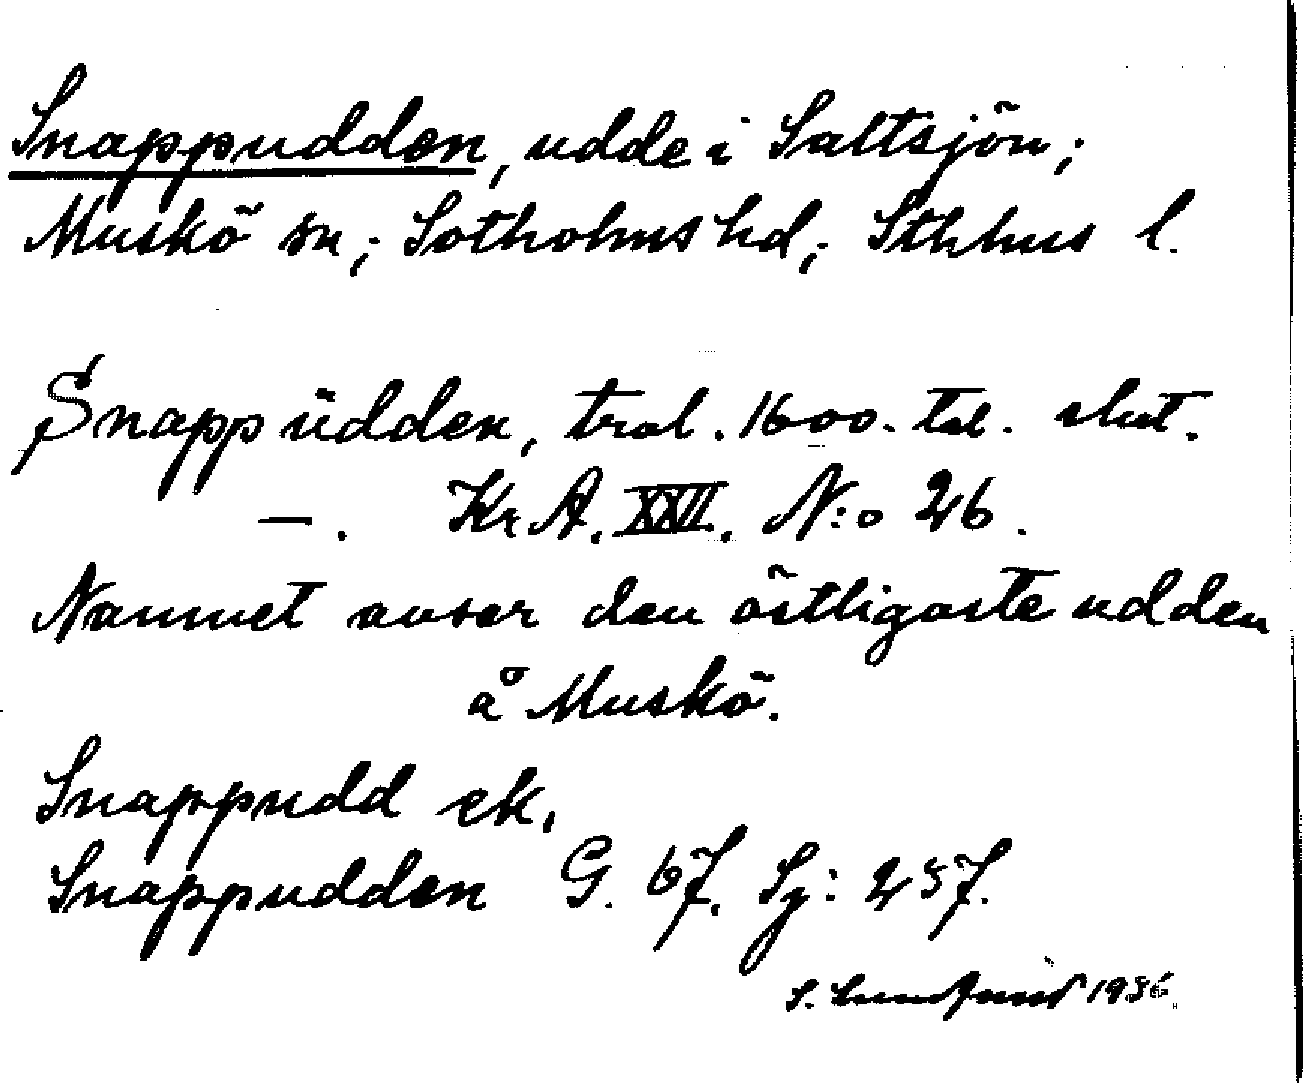 Snappudden, udde i Saltsjön;
Muskö sn; Sotholms hd; Sthlms l.
Snappüdden, trol. 1600-tal. slut.
—. Kr A. XXVI. N:o 26.
Namnet avser den östligaste udden
å Muskö.
Snappudd ek.
Snappudden G. 67. Sj: 257.
S. 1936